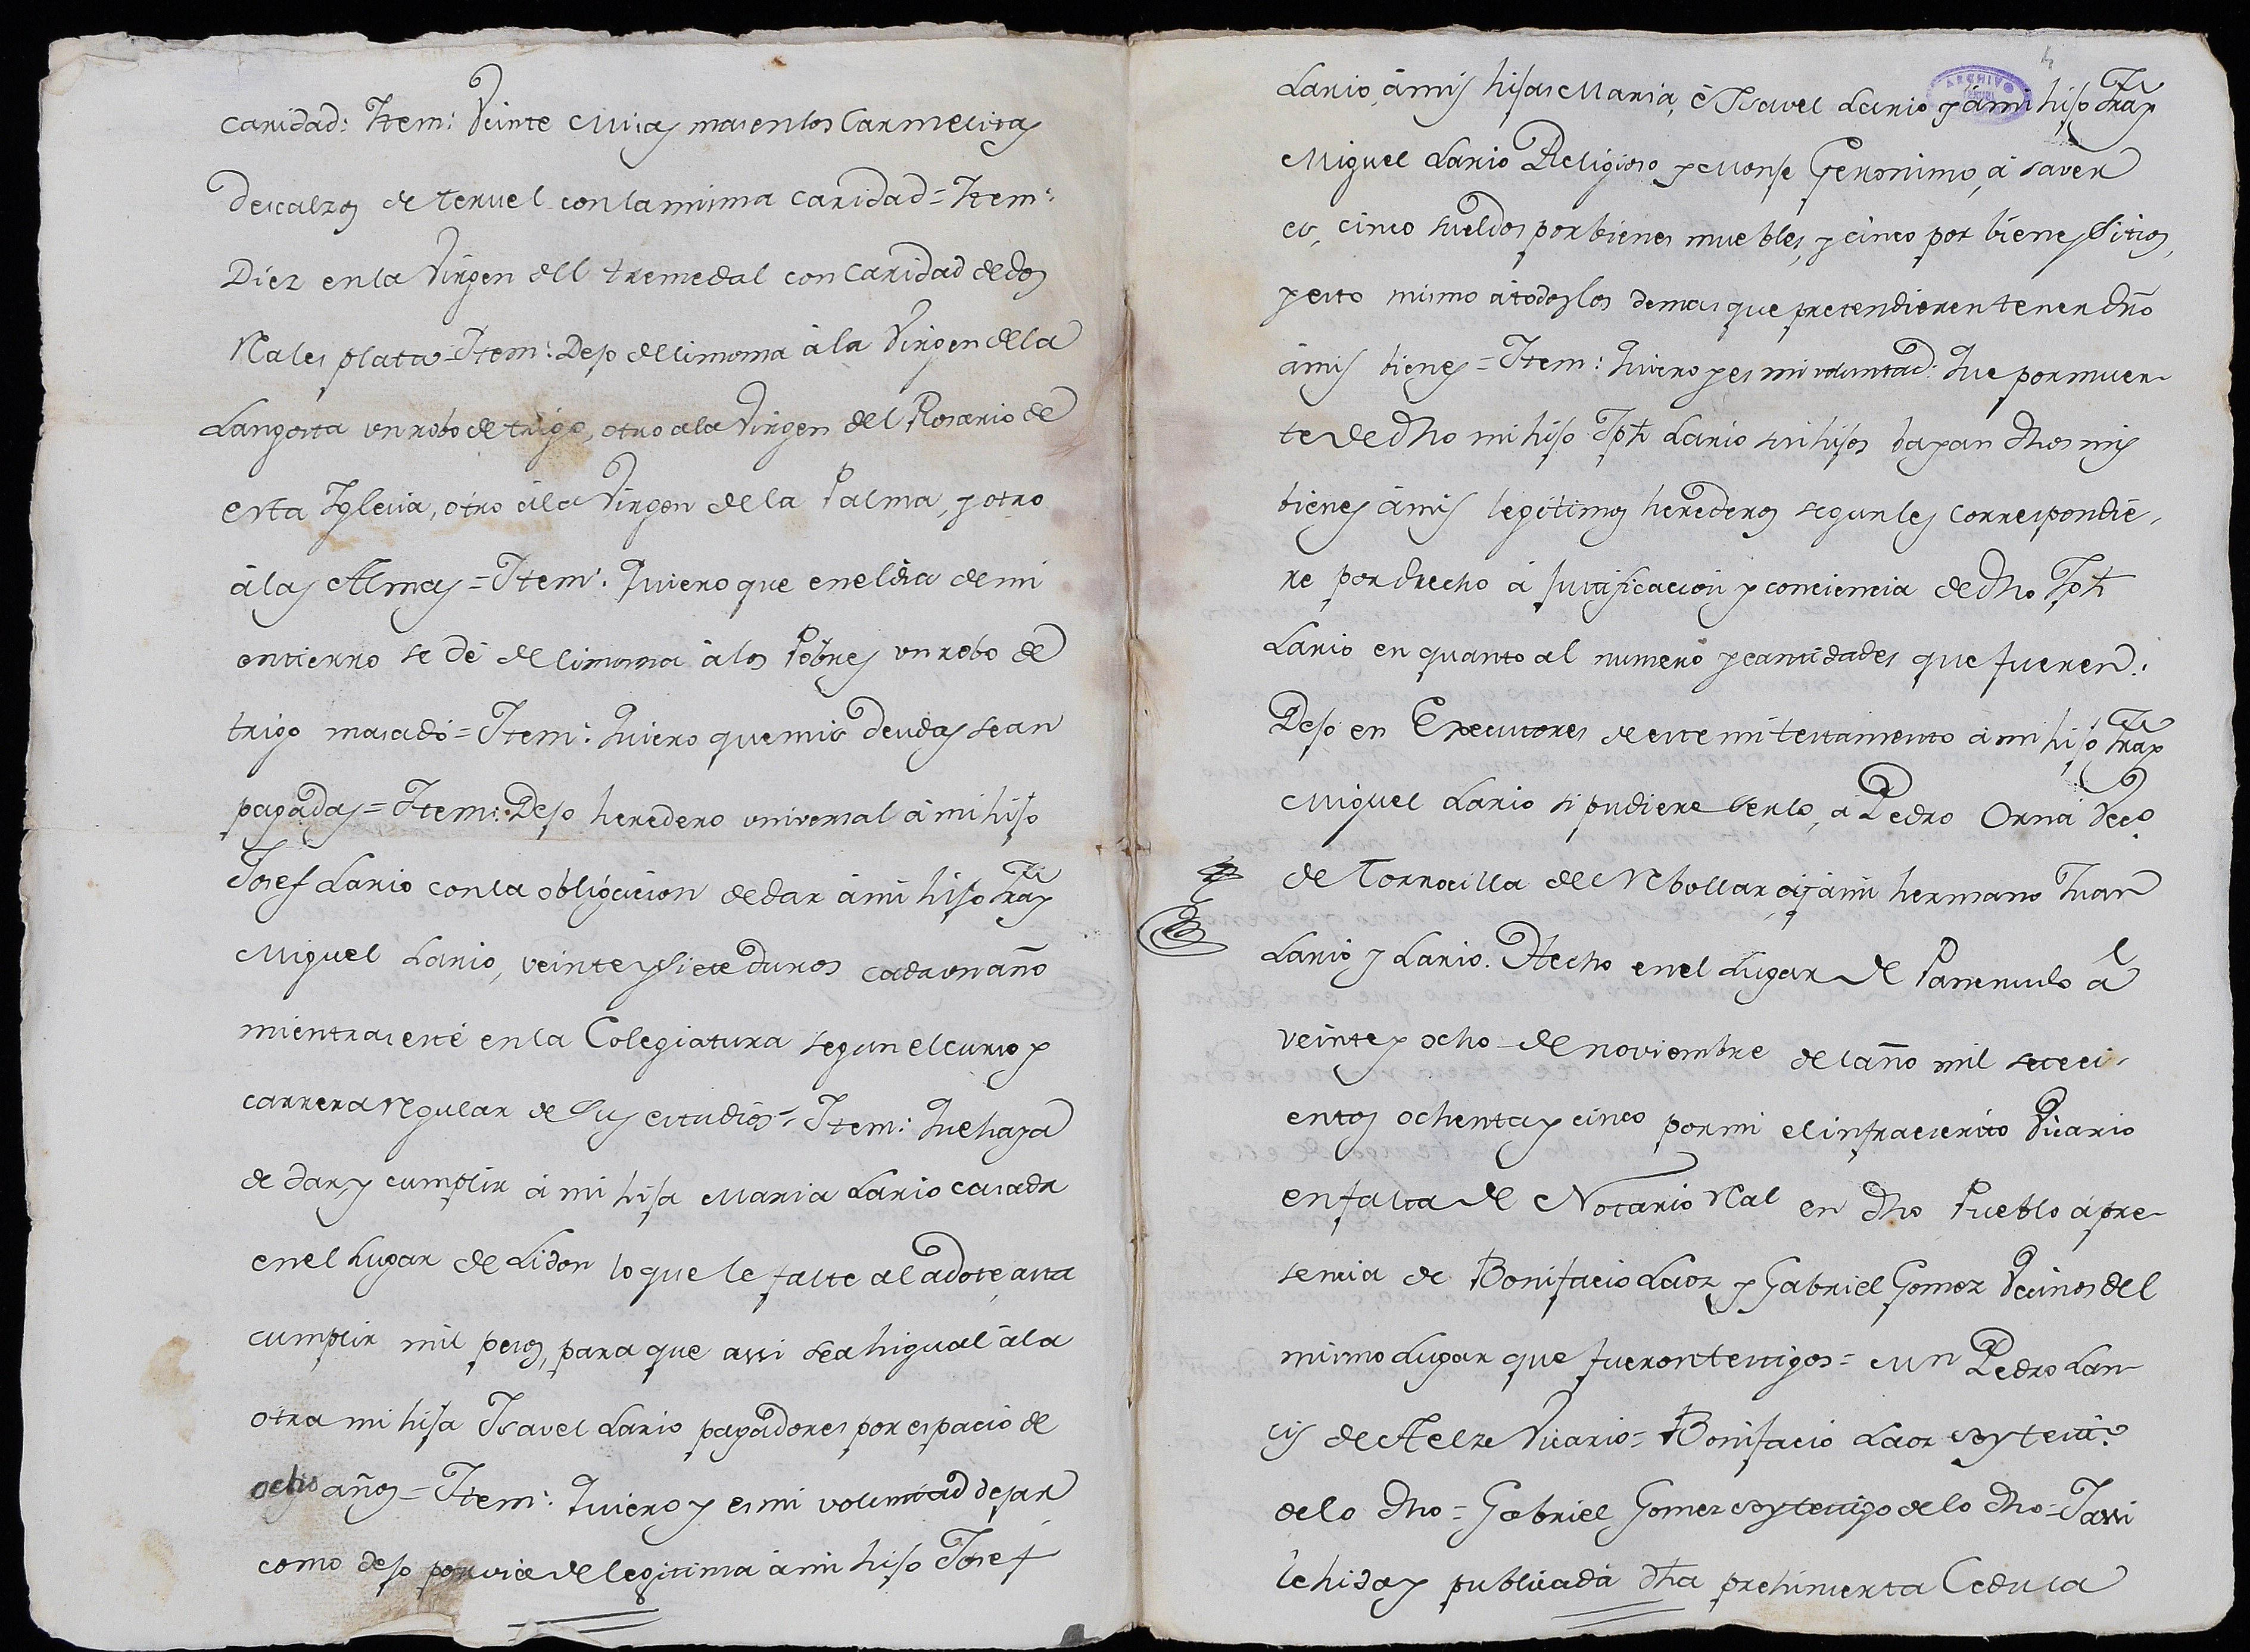 caridad: Item: Veinte Misas mas en los Carmelitas
descalzos de teruel con la misma caridad = Item:
Diez en la Virgen dell tremedal con caridad de dos
Rales plata = Item: Dejo de limosna à la Virgen de la
Langosta un robo de trigo, otro a la Virgen del Rosario de
esta Iglesia, otro à la Virgen de la Palma, y otro
à las Almas = Item: Quiero que en el dia de mi
entierro se dè de limosna à los Pobres un robo de
trigo masado = Item: Quiero que mis deudas sean
pagadas = Item: Dejo heredero universal à mi hijo
Josef Lario con la obligacion de dar à mi hijo Fray
Miguel Lario, veinte y siete duros cada un año
mientras estè en la Colegiatura segun el curso y
carrera regular de sus estudios = Item: Que haya
de dar, y cumplir à mi hija Maria Lario casada
en el Lugar de Lidon lo que le falte al adote, asta
cumplir mil pesos, para que assi sea higual à la
otra mi hija Isavel Lario pagadores por espacio de
ocho años = Item: Quiero y es mi voluntad dejar
como dejo por via de legitima à mi hijo Josef
Lario, à mis hijas Maria, è Isavel Lario y à mi hijo Fray
Miguel Lario Religioso, y Monje Geronimo, à saver
es, cinco sueldos por bienes muebles, y cinco por bienes sitios,
y esto mismo à todos los demas que pretendieren tener dro
à mis bienes = Item: Quiero y es mi voluntad: Que por muer-
te de dho mi hijo Jph Lario sin hijos bayan dhos mis
bienes à mis legitimos herederos segun les correspondie-
re por drecho à justificacion y conciencia de dho Jph
Lario en quanto al numero y cantidades que fueren:
Dejo en Executores de este mi testamento à mi hijo Fray
Miguel Lario si pudiere serlo, à Pedro Orna Veco
de Torrecilla del Rebollar, y à mi hermano Juan
Lario y Lario. Hecho en el Lugar de Pancrudo à
veinte y ocho de noviembre del año mil seteci-
entos ochenta y cinco por mi el infraescrito Vicario
en falta de Notario Ral en dho Pueblo à pre-
sencia de Bonifacio Laoz y Gabriel Gomez Vecinos del
mismo Lugar que fueron testigos = Mn Pedro Lan-
cis de Aelze Vicario = Bonifacio Laoz soy testi.º
de lo dho = Gabriel Gomez soy testigo de lo dho = I assi
lehida y publicada dha prehinserta Cedula